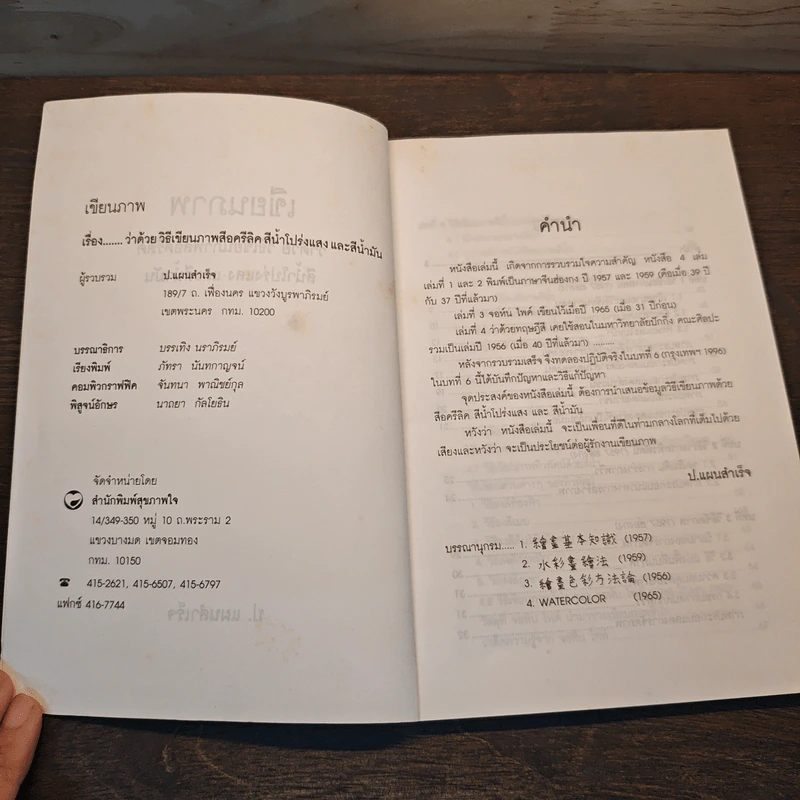 เขียนภาพ
เรื่อง....... ว่าด้วย วิธีเขียนภาพสีอครีลิค สีน้ำโปร่งแสง และสีน้ำมัน
ผู้รวบรวม ป.แผนสำเร็จ
189/7 ถ. เฟื่องนคร แขวงวังบูรพาภิรมย์
เขตพระนคร กทม. 10200
บรรณาธิการ บรรเทิง นราภิรมย์
เรียงพิมพ์ ภัทรา นันทกาญจน์
คอมพิวกราฟฟิค จันทนา พาณิชย์กุล
พิสูจน์อักษร นาถยา กัลโยธิน
จัดจำหน่ายโดย
สำนักพิมพ์สุขภาพใจ
14/349-350 หมู่ 10 ถ.พระราม 2
แขวงบางมด เขตจอมทอง
กทม. 10150
☎ 415-2621, 415-6507, 415-6797
แฟกซ์ 416-7744
คำนำ
หนังสือเล่มนี้ เกิดจากการรวบรวมใจความสำคัญ หนังสือ 4 เล่ม
เล่มที่ 1 และ 2 พิมพ์เป็นภาษาจีนฮ่องกง ปี 1957 และ 1959 (คือเมื่อ 39 ปี
กับ 37 ปีที่แล้วมา)
เล่มที่ 3 จอห์น ไพค์ เขียนไว้เมื่อปี 1965 (เมื่อ 31 ปีก่อน)
เล่มที่ 4 ว่าด้วยทฤษฎีสี เคยใช้สอนในมหาวิทยาลัยปักกิ่ง คณะศิลปะ
รวมเป็นเล่มปี 1956 (เมื่อ 40 ปีที่แล้วมา) .........
หลังจากรวบรวมเสร็จ จึงทดลองปฏิบัติจริงในบทที่ 6 (กรุงเทพฯ 1996)
ในบทที่ 6 นี้ได้บันทึกปัญหาและวิธีแก้ปัญหา
จุดประสงค์ของหนังสือเล่มนี้ ต้องการนำเสนอข้อมูลวิธีเขียนภาพด้วย
สีอครีลิค สีน้ำโปร่งแสง และ สีน้ำมัน
หวังว่า หนังสือเล่มนี้ จะเป็นเพื่อนที่ดีในท่ามกลางโลกที่เต็มไปด้วย
เสียงและหวังว่า จะเป็นประโยชน์ต่อผู้รักงานเขียนภาพ
ป.แผนสำเร็จ
บรรณานุกรม..... 1. 繪畫基本知識 (1957)
2. 水彩畫繪法 (1959)
3. 繪畫色彩方法論 (1956)
4. WATERCOLOR (1965)